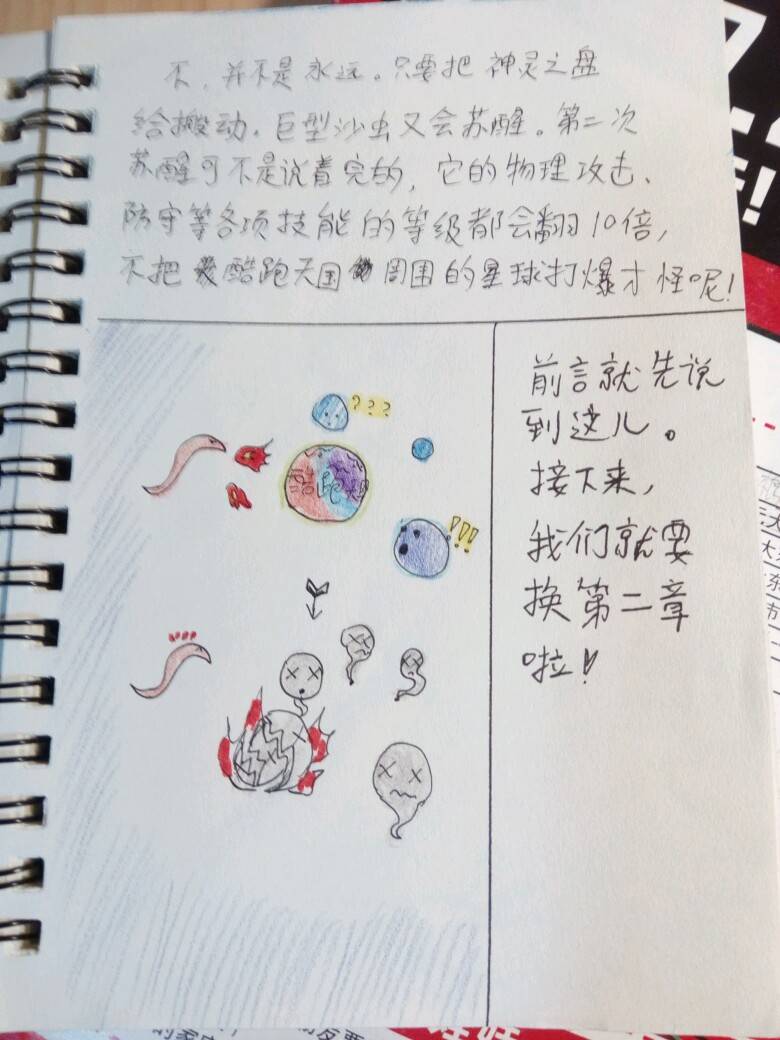 不,并不是永远。只要把神灵之盘
给搬动,巨型沙虫又会苏醒。第二次
苏醒可不是说着完的,它的物理攻击、
防守等各项技能的等级都会翻10倍,
不把酷跑天国周围的星球打爆才怪呢!
???
酷跑
!!!
前言就先说
到这儿。
接下来,
我们就要
换第二章
啦!